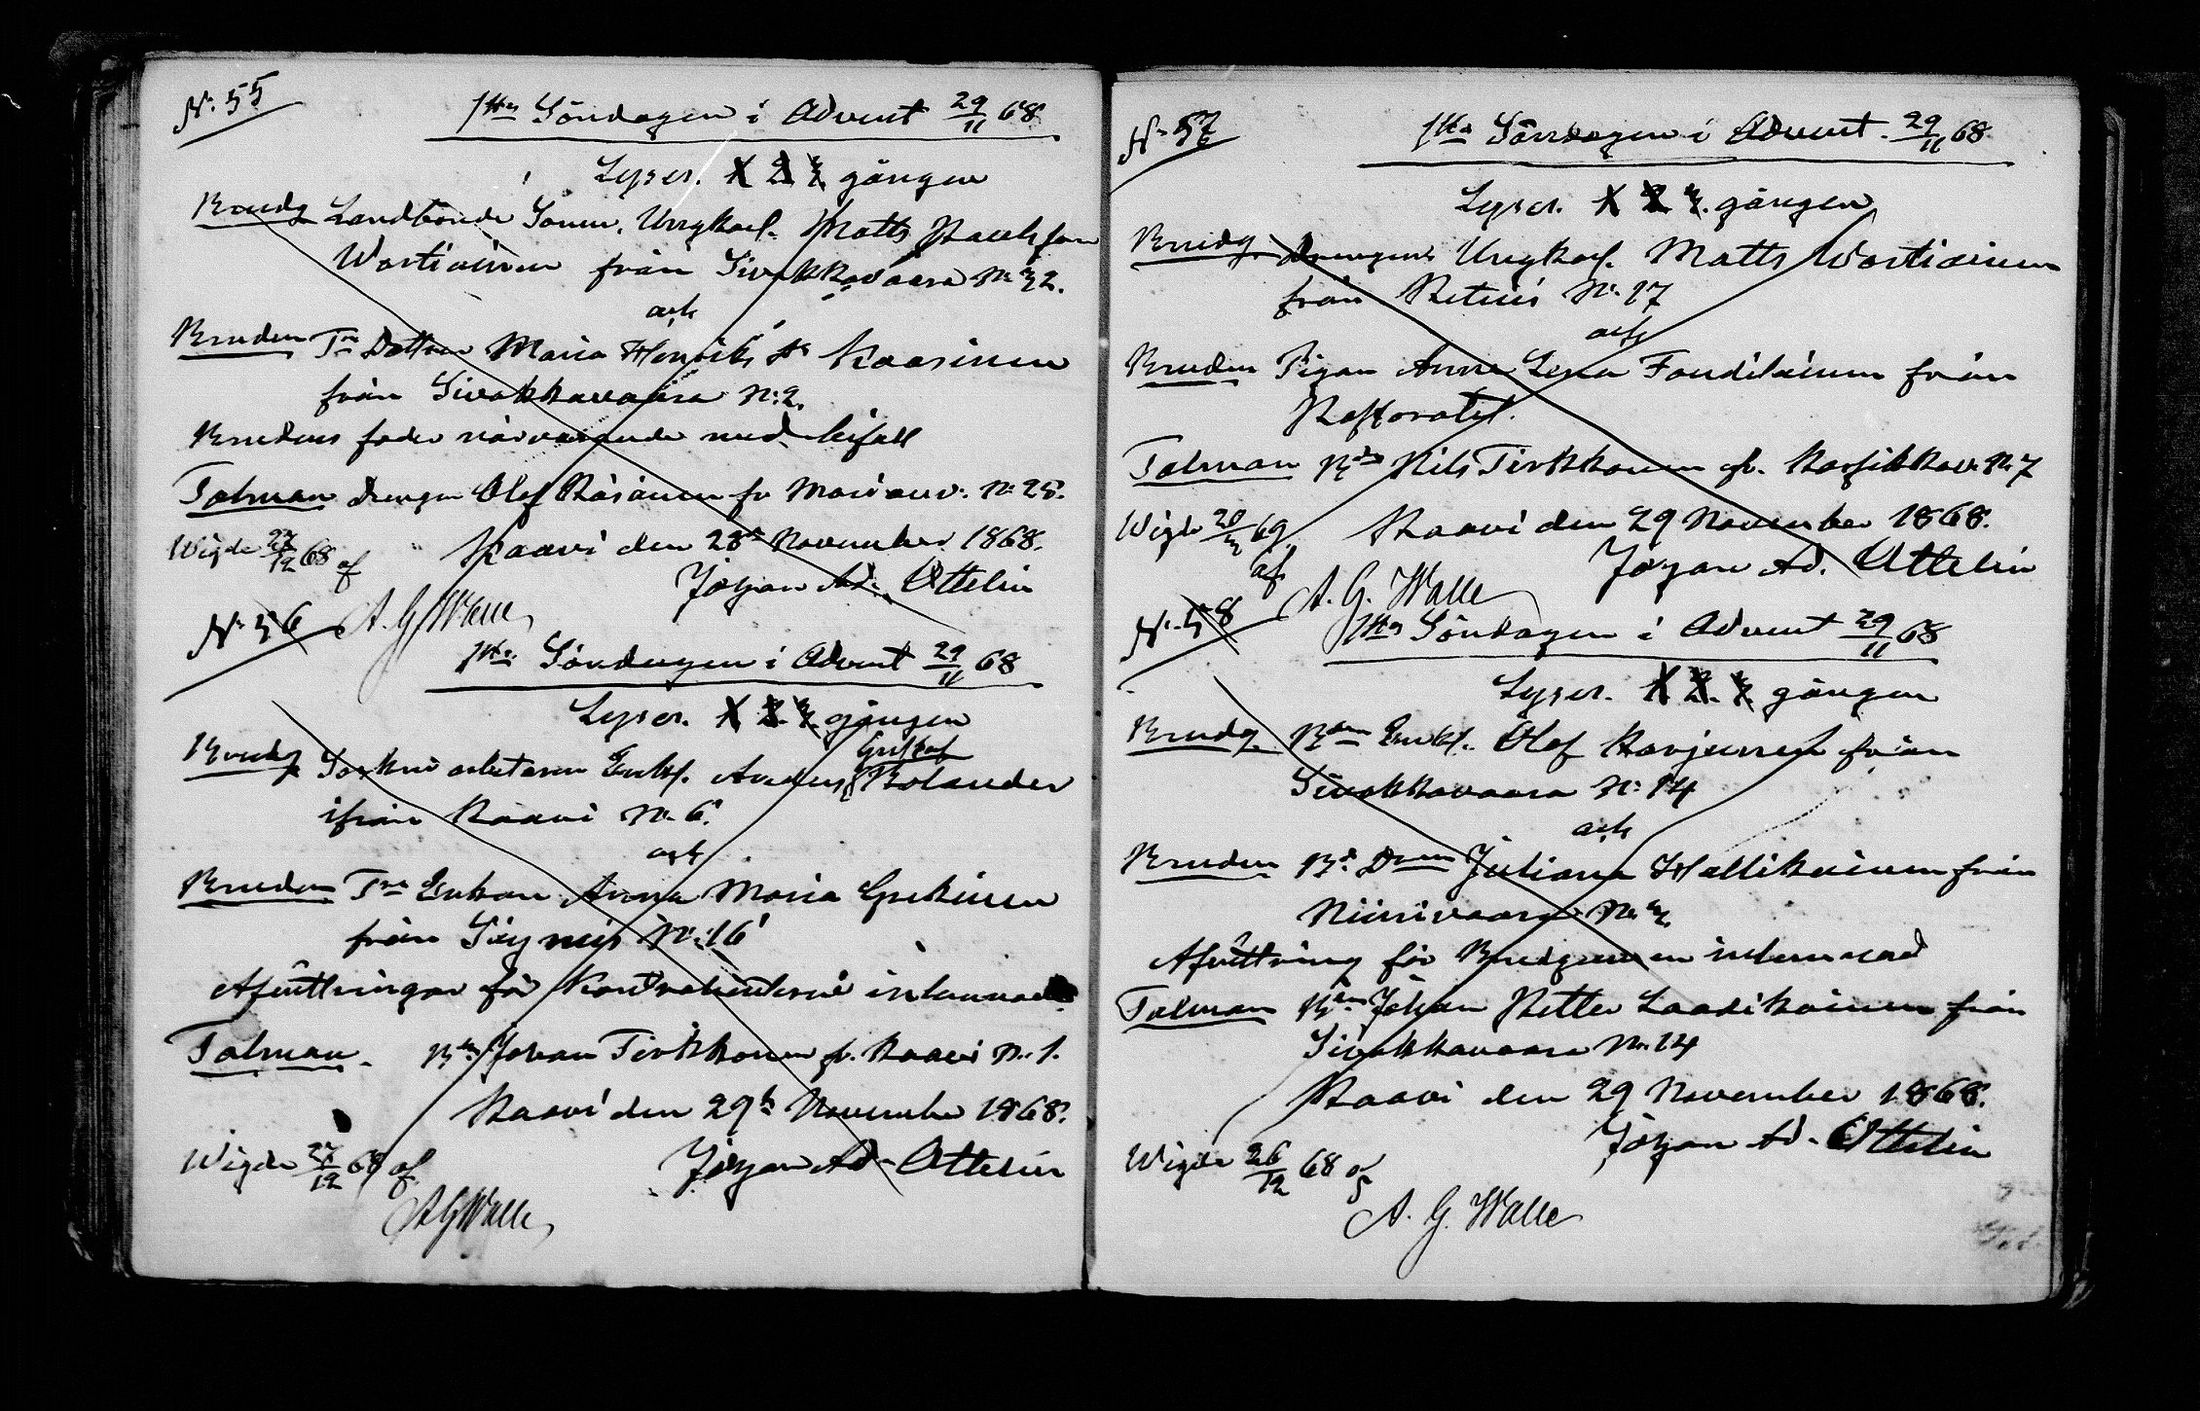 N:o 55
1sta Söndagen i Advent 29/11 68.
Lyses. 1 2 3 gången
Brudg Landbonde Sonen, Ungkarl. Matts Paulsson
Wartiainen från Sivakkavaara No 32.
och
Bruden Tr Dottren Maria Henriks dr Kaasinen
från Sivakkavaara N:o 2.
Brudens fader närvarande med bifall
Talman Drengen Olof Räsänen fr Mariav: No 28.
Wigde 27/12 68 af
Kaavi den 28 November 1868.
Johan Ad. Ottelin
A. G. Walle
N:o 56
1sta Söndagen i Advent 29/11 68
Lyses. 1 2 3 gången
Brudg Enkl. Anders Gustaf Bolander
ifrån Kaavi No 6.
och
Bruden Enkan Anna Maria
från No 16
Afvittringar för Kontrahenterne inlemnade
Talman. Johan Tirkkonen fr. Kaavi No 1.
Kaavi den 29 November 1868.
Wigde 27/12 68 af
Johan Ad. Ottelin
A G Walle
N:o 57
1sta Söndagen i Advent. 29/11 68
Lyses. 1 2 3. gången
Brudg. Drengen Ungkarl. Matts Wartiainen
från Retuis No 17
och
Bruden Pigan Anna Lena Taudilainen från
Pastoratet.
Talman Nils Tirkkonen fr. No 7
Wigde 20/3 69 af
Kaavi den 29 November 1868.
Johan Ad. Ottelin
A. G. Walle
N:o 58
1sta Söndagen i Advent 29/11 68
Lyses. 1 2. 3 gången
Brudg. Enkl. Olof Karjunen från
Sivakkavaara No 14
och
Bruden Juliana Hallikainen från
Niinivaara No 3.
Afvittring för Brudgummen inlemnad
Talman Johan Petter Laadikainen från
Sivakkavaara No 14
Kaavi den 29 November 1868.
Johan Ad. Ottelin
Wigde 26/12 68 af
A. G. Walle